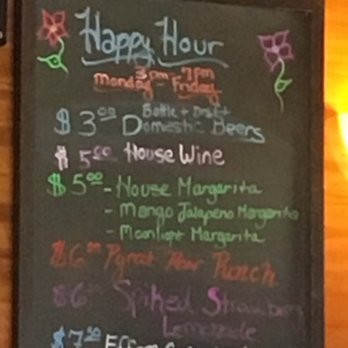 Happy Hour
3pm - 7pm
Monday - Friday
Bottle + Draft
$3.00 Domestic Beers
$5.00 House Wine
$5.00 - House Margarita
- Mango Jalapeno Margarita
- Moonlight Margarita
$6.00 Pear Punch
$6.00 Spiked Strawberry
Lemonade
$7.50